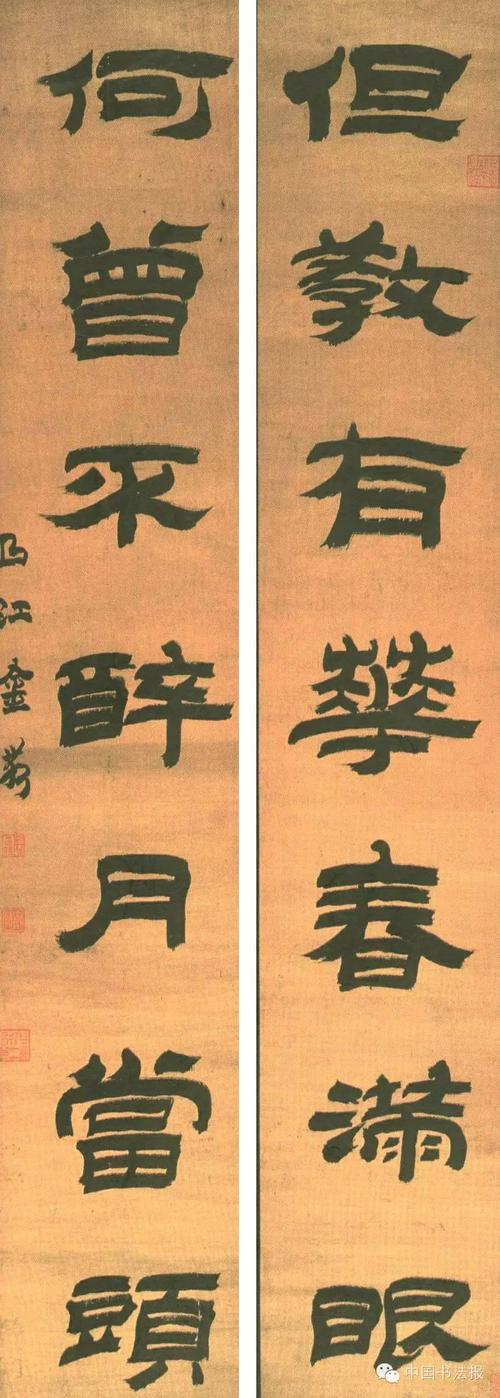 但敎有華春滿眼
何曾不醉月當頭
曲江金鰲
中国书法报